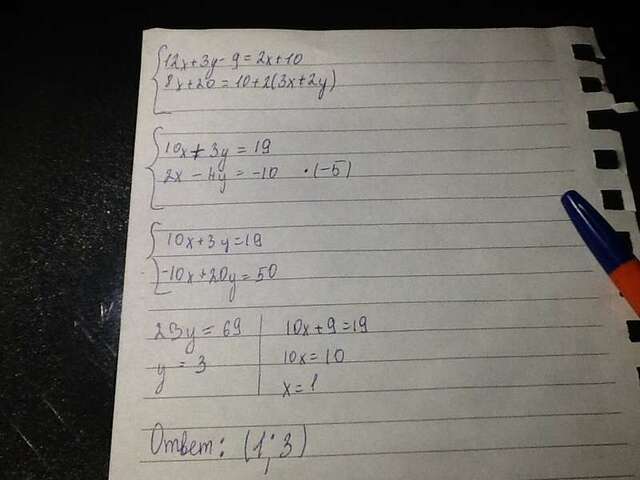 12x+3y-9=2x+10
8x+20=10+2(3x+2y)
10x+3y=19
2x-4y=-10 ·(-5)
10x+3y=19
-10x+20y=50
23y=69
y=3
10x+9=19
10x=10
x=1
Ответ: (1;3)